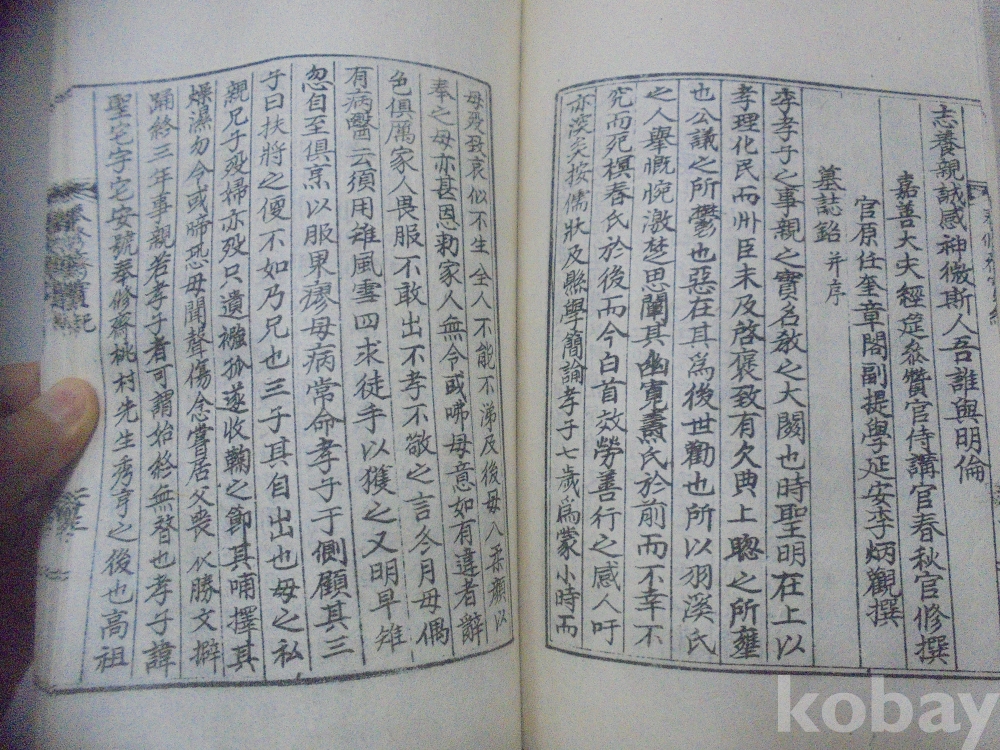 志養親誠感神微斯人吾誰與明倫
嘉善大夫經筵叅贊官侍講官春秋官修撰
官原任奎章閣副提學延安李炳觀撰
墓誌銘并序
李孝子之事親之實名敎之大閼也時聖明在上以
孝理化民而州臣未及啓褒致有欠典上聰之所壅
也公議之所鬱也惡在其爲後世勸也所以羽溪氏
之人擧慨惋激楚思闡其幽寬燾氏於前而不幸不
究而死棋春氏於後而今白首效勞善行之感人吁
亦深矣按儒狀及縣學簡論孝子七歲爲蒙小時而
母歿致哀似不生全人不能不涕及後母入柔顔以
奉之母亦甚恩勑家人無令或咈母意如有違者辭
色俱厲家人畏服不敢出不孝不敬之言冬月母偶
有病醫云須用雉風雪四求徒手以獲之又明早雉
忽自至俱烹以服果瘳母病常命孝子于側顧其三
子曰扶將之便不如乃兄也三子其自出也母之私
親兄子歿婦亦歿只遺襁孤遂收鞠之節其哺擇其
燥濕勿令或啼恐母聞聲傷念嘗居父喪以勝文擗
踊終三年事親若孝子者可謂始終無瞀也孝子諱
聖宅字宅安號奉修齋桃村先生秀亨之後也高祖
kobay